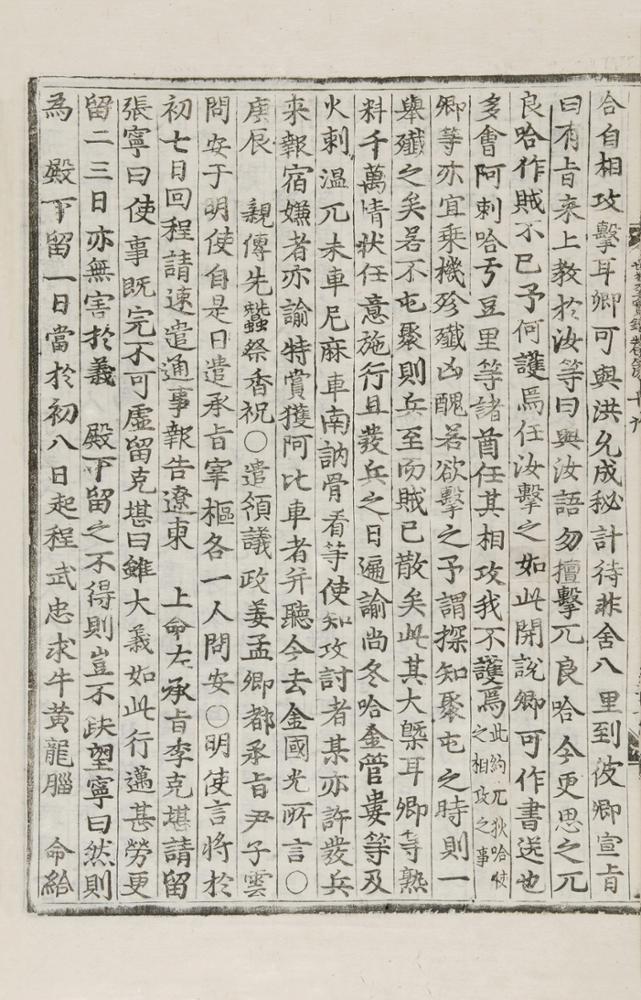 合自相攻擊耳卿可與洪允成秘計待非舍八里到彼卿宣旨
曰有旨来上教於汝等曰與汝語勿擅擊兀良哈今更思之兀
良哈作賊不已予何護焉任汝擊之如此開說卿可作書送也
多會阿剌哈亏豆里等諸酋任其相攻我不護焉此約兀狄哈
之相攻之事
卿等亦宜乗機殄殲凶醜若欲擊之予謂探知聚屯之時則一
舉殲之矣若不屯聚則兵至而賊已散矣此其大槩耳卿等熟
料千萬情狀任意施行且發兵之日遍諭尚冬哈金管婁等及
火剌溫兀未車尼麻車南訥骨看等使知攻討者某亦許發兵
来報宿嫌者亦諭特賞獲阿比車者并聽今去金國光所言○
庚辰 親傳先蠶祭香祝○遣領議政姜孟卿都承旨尹子雲
問安于明使自是日遣承旨宰樞各一人問安○明使言將於
初七日回程請速遣通事報告遼東 上命左承旨李克堪請留
張寧曰使事既完不可虛留克堪曰雖大義如此行邁甚勞更
留二三日亦無害於義 殿下留之不得則豈不缺望寧曰然則
為 殿下留一日當於初八日起程武忠求牛黃龍腦 命給